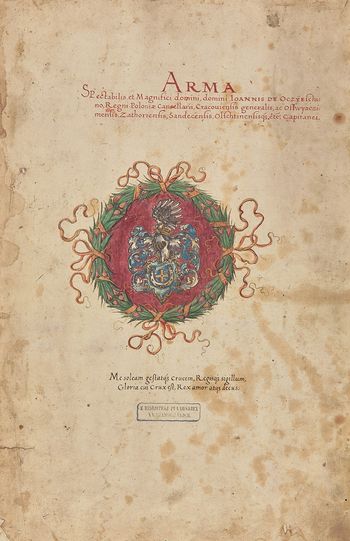 ARMA
Spectabilis et Magnifici domini, domini IOANNIS DE OCZYESchi
no, Regni Poloniæ Cancellarii, Cracoviensis generalis, ac Oswyaczi
mensis, Zathoriensis, Sandecensis, Olschtinensisq; etc: Capitanei.
Me soleam gestatq; crucem, Regiiq; sigillum,
Gloria cui Crux est, Rex amor atq; decus.